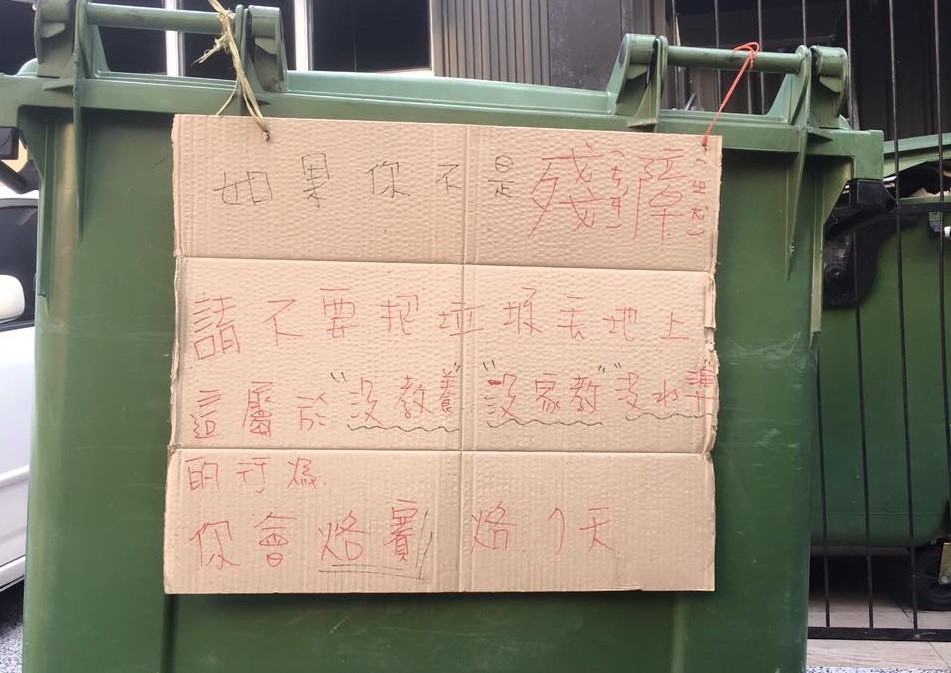 如果你不是殘(ㄘㄢˊ)障(ㄓㄤˋ)
請不要把垃圾丟地上
這屬於"沒教養""沒家教"沒水準
的行為
你會烙賽 烙7天